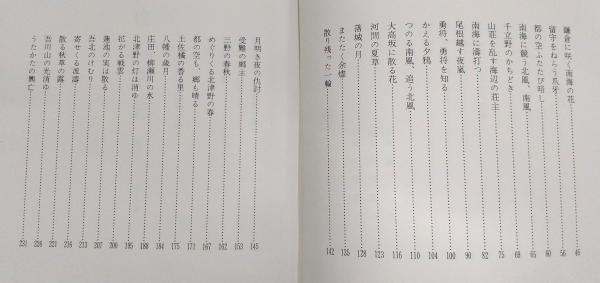 鎌倉に咲く南海の花……46
留守をねらう爪牙……56
都の空ふたたび暗し……60
南海に競う北風、南風……65
千立野のかちどき……69
山荘を乱す海辺の荘主……75
南海に濤打つ……82
尾根越す夜嵐……90
勇将、勇将を知る……100
かえる夕鴉……104
つのる南風、追う北風……110
大高坂に散る花……116
河間の夏草……123
落城の月……128
またたく余燼……135
散り残った一輪……142
月明き夜の仇討……145
受難の郷主……153
三野の春秋……162
めぐりくる北津野の春……167
都の空も、郷も晴る……171
土佐橘の香る里……175
八幡の歳月……184
庄田、柳瀬川の水……188
北津野の灯は消ゆ……195
拡がる戦雲……200
蓮池の実は散る……207
吾北のけむり……213
寄せくる波濤……216
散る秋草の露……221
吾川山の光消ゆ……226
うたかたの興亡……231